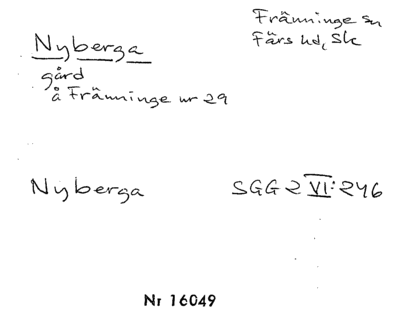 Främninge sn
Färs hd, Sk
Nyberga
gård
å Främninge nr 29
Nyberga SGG 2 VI: 246
Nr 16049